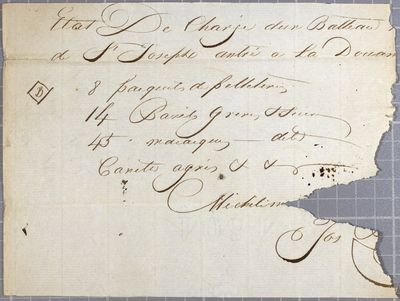 Etat De Charge dun Batteau
d St Josephe antré a La Douan
D 8 paquets d pelleterie
14 Barils Grens & Sucre
45 macaques dito
Canots agrés & &
Michilim
Jos